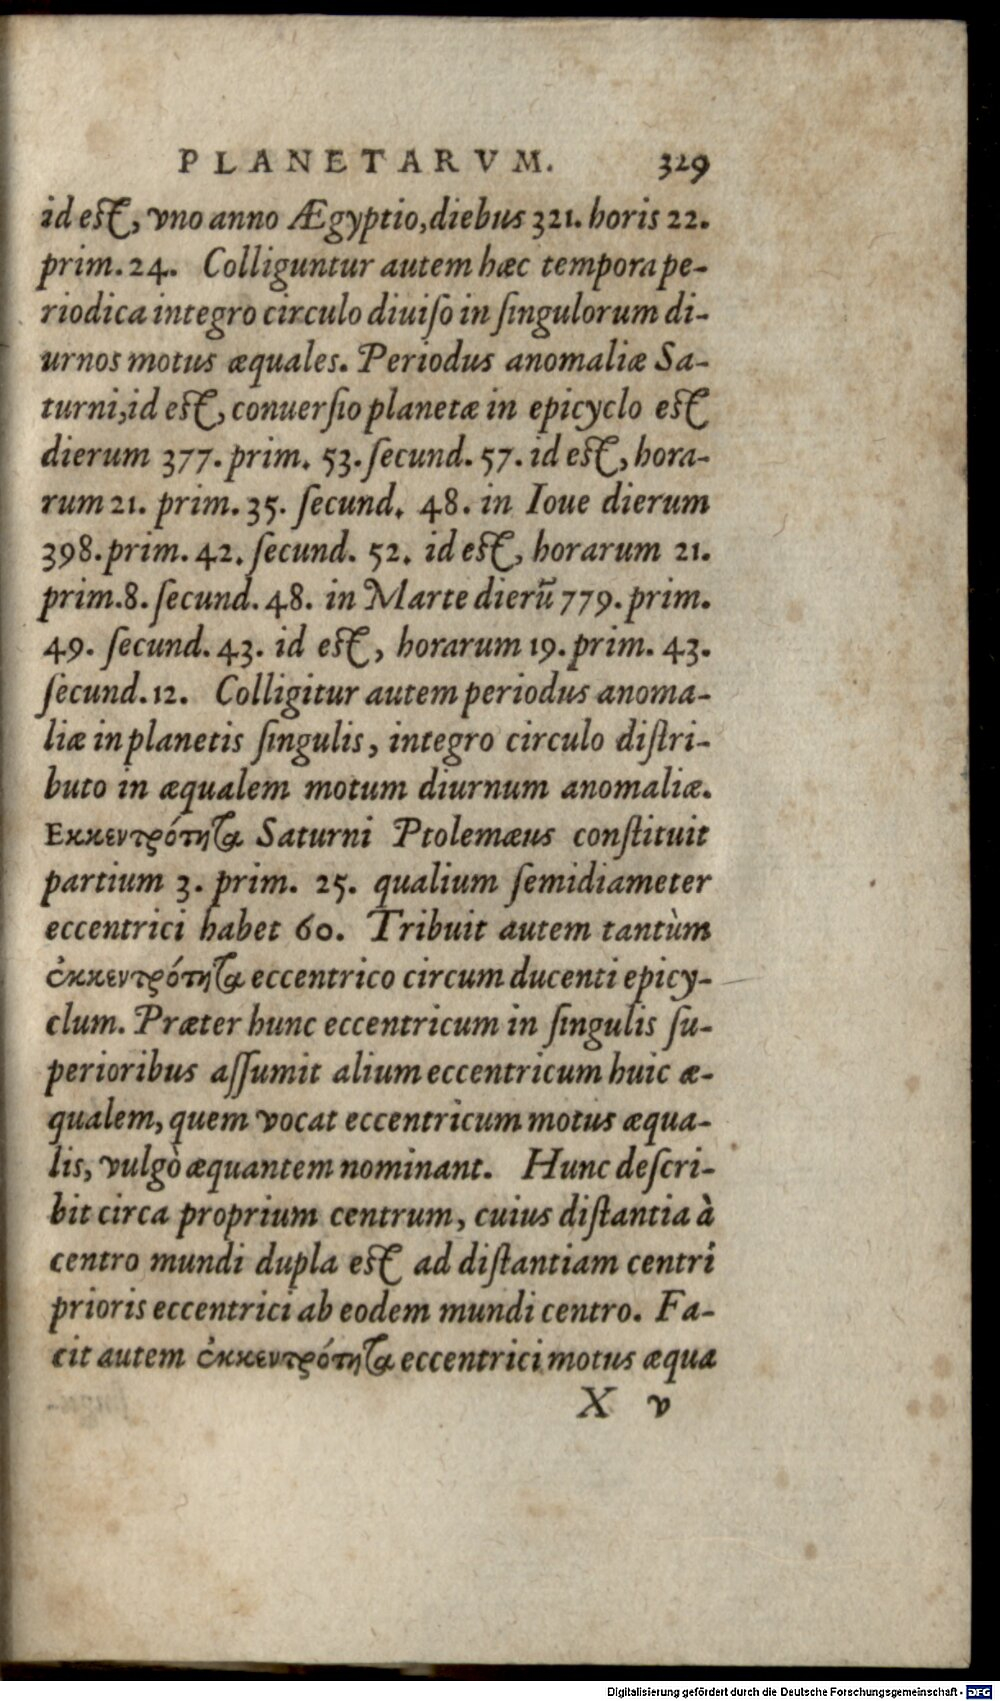 PLANETARVM. 329
id eſt, vno anno Ægyptio, diebus 321. horis 22.
prim. 24. Colliguntur autem hæc tempora pe-
riodica integro circulo diuiſo in ſingulorum di-
urnos motus æquales. Periodus anomaliæ Sa-
turni, id eſt, conuerſio planetæ in epicyclo eſt
dierum 377. prim. 53. ſecund. 57. id eſt, hora-
rum 21. prim. 35. ſecund. 48. in Ioue dierum
398. prim. 42. ſecund. 52. id eſt, horarum 21.
prim. 8. ſecund. 48. in Marte dierū 779. prim.
49. ſecund. 43. id eſt, horarum 19. prim. 43.
ſecund. 12. Colligitur autem periodus anoma-
liæ in planetis ſingulis, integro circulo diſtri-
buto in æqualem motum diurnum anomaliæ.
Εκκεντρότητα Saturni Ptolemæus conſtituit
partium 3. prim. 25. qualium ſemidiameter
eccentrici habet 60. Tribuit autem tantùm
ἐκκεντρότητα eccentrico circum ducenti epicy-
clum. Præter hunc eccentricum in ſingulis ſu-
perioribus aſſumit alium eccentricum huic æ-
qualem, quem vocat eccentricum motus æqua-
lis, vulgò æquantem nominant. Hunc deſcri-
bit circa proprium centrum, cuius diſtantia à
centro mundi dupla eſt ad diſtantiam centri
prioris eccentrici ab eodem mundi centro. Fa-
cit autem ἐκκεντρότητα eccentrici motus æqua
X v
Digitalisierung gefördert durch die Deutsche Forschungsgemeinschaft - DFG